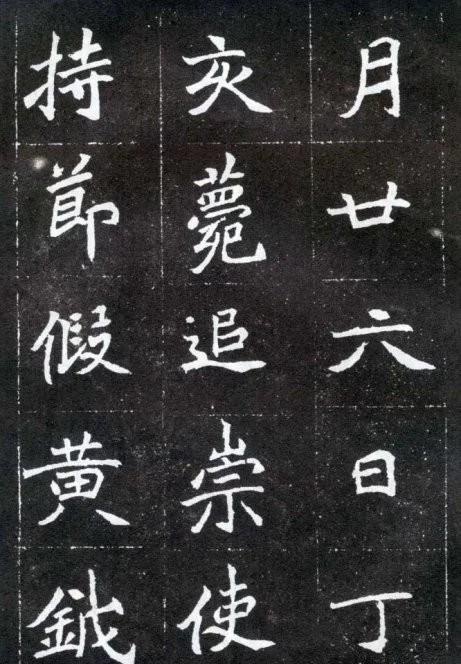 月廿六日丁
亥薨追崇使
持節假黄鉞